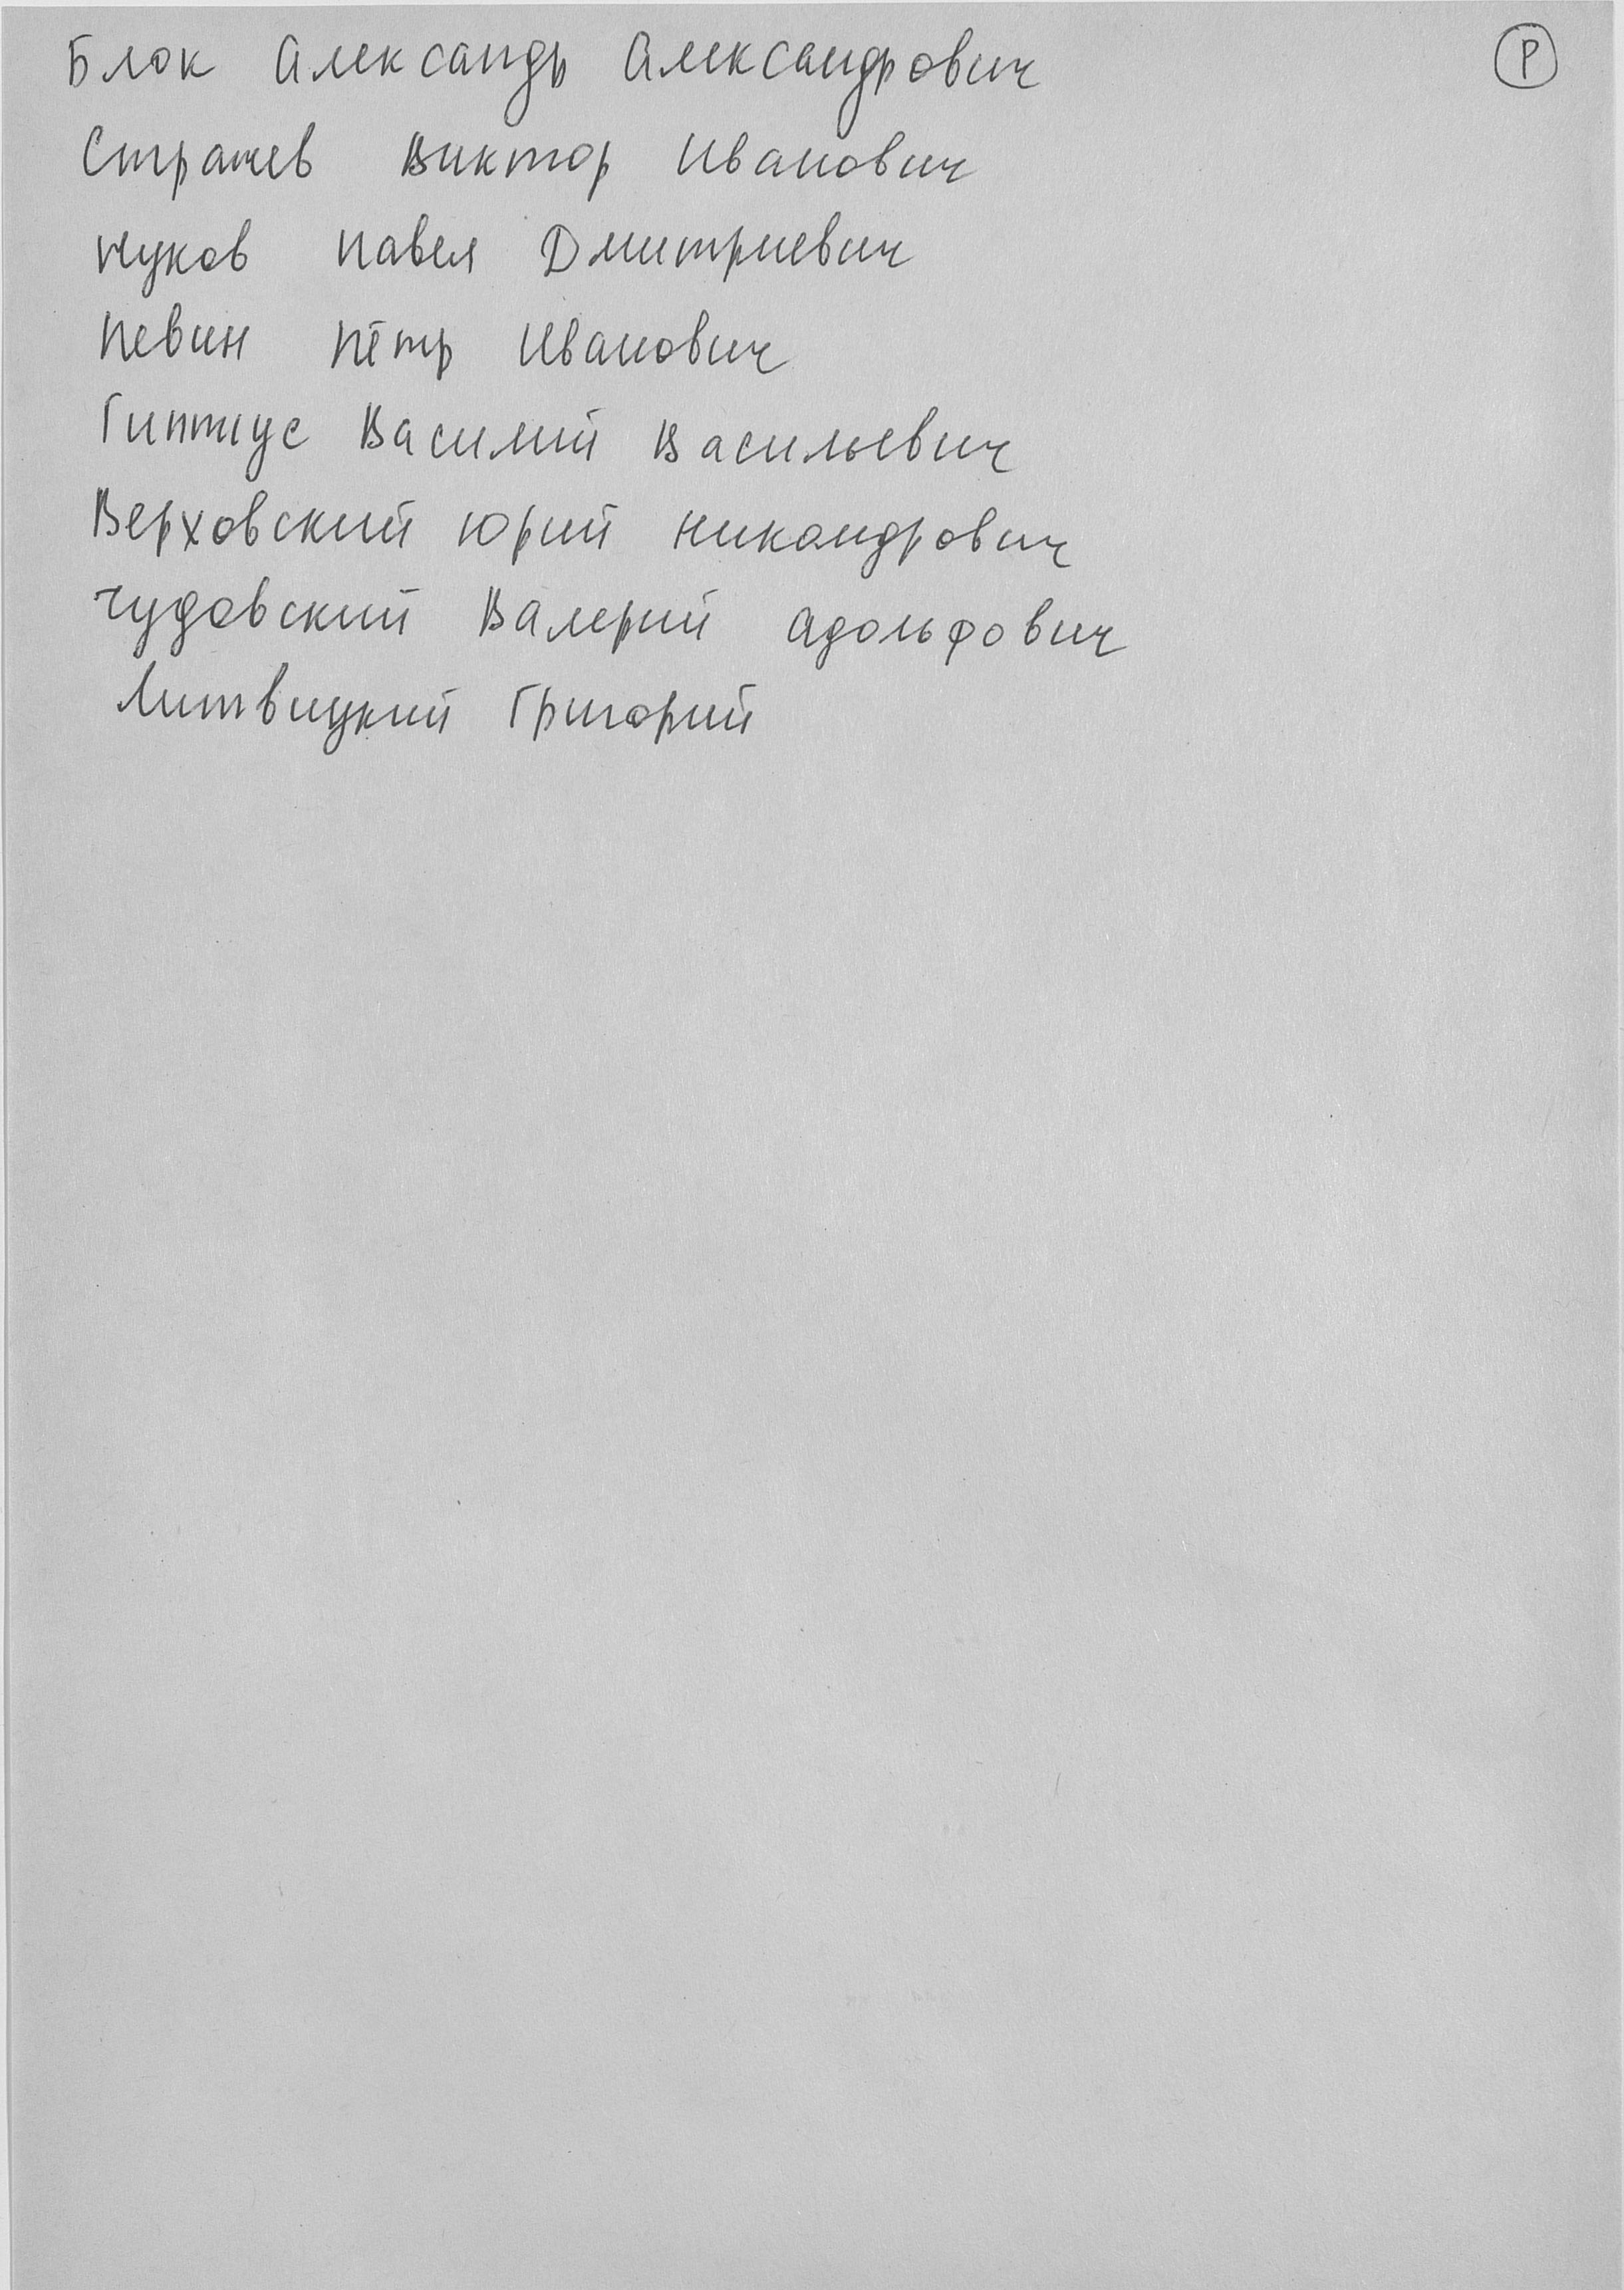 Блок Александр Александрович Р
Стражев Виктор Иванович
Жуков Павел Дмитриевич
Певин Пётр Иванович
Гиппиус Василий Васильевич
Верховский Юрий Никандрович
Чудовский Валерий Адольфович
Литвицкий Григорий